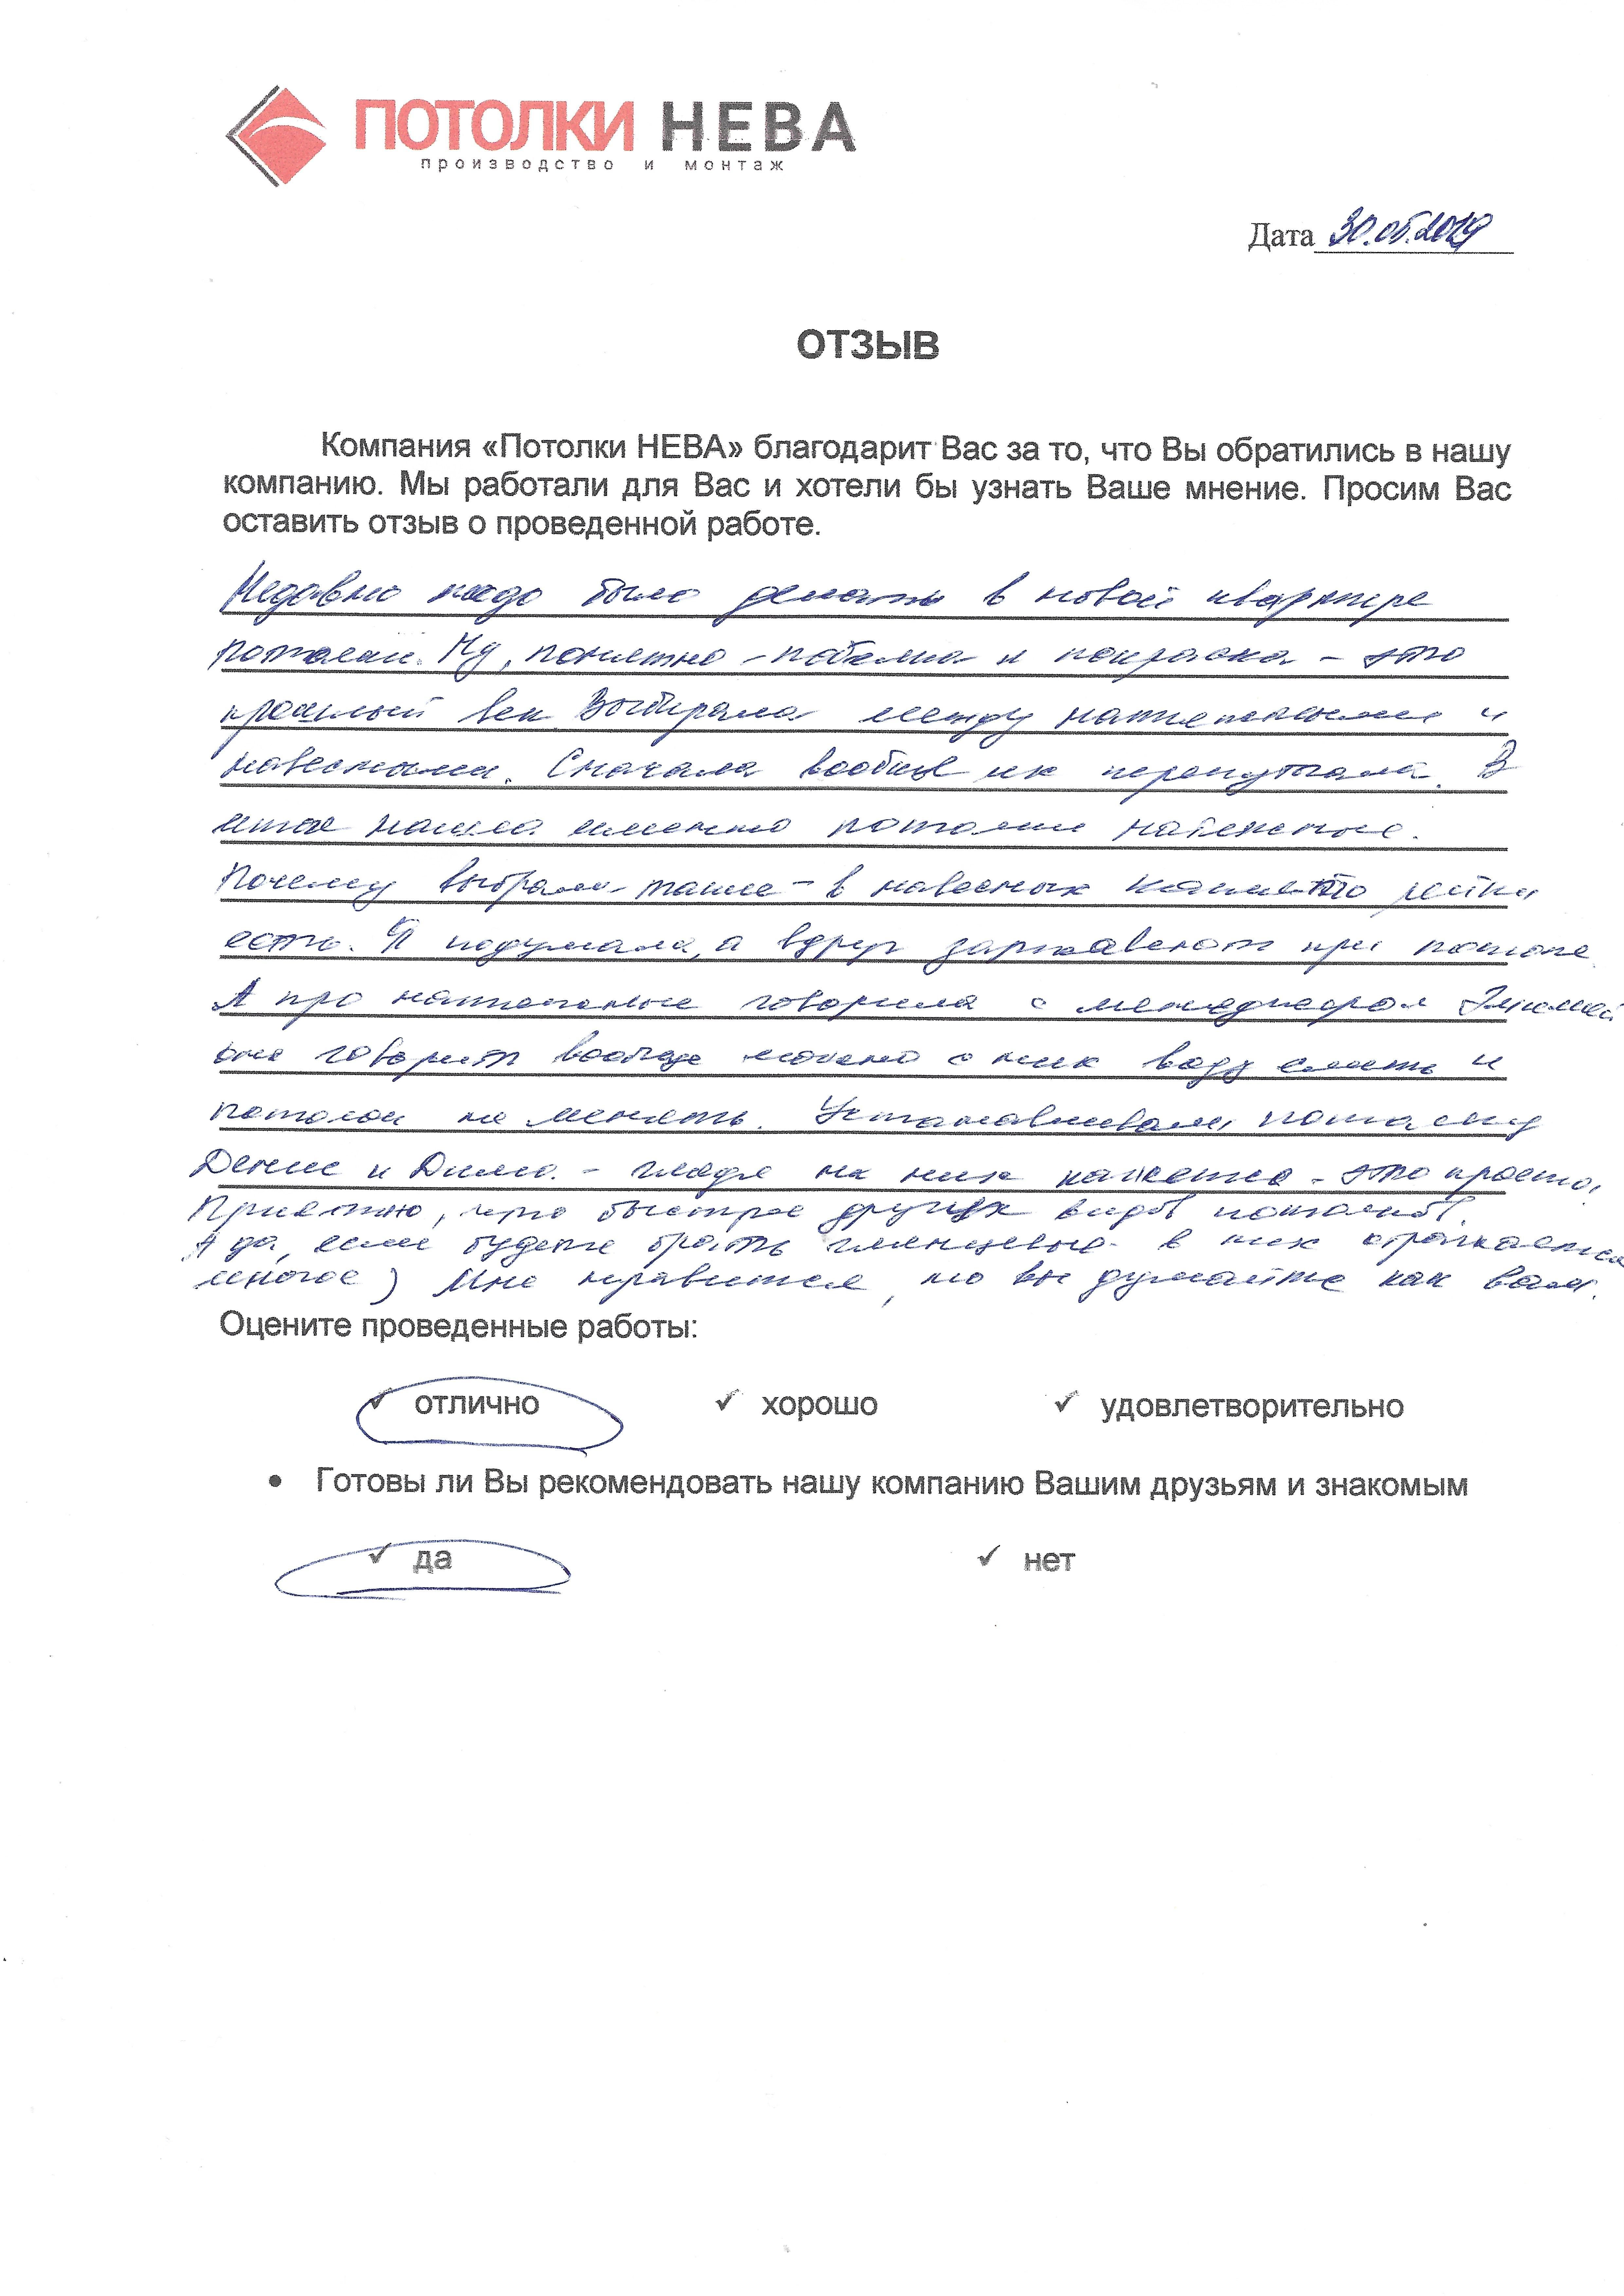 ПОТОЛКИ НЕВА
производство и монтаж
Дата 30.05.2019
ОТЗЫВ
Компания «Потолки НЕВА» благодарит Вас за то, что Вы обратились в нашу
компанию. Мы работали для Вас и хотели бы узнать Ваше мнение. Просим Вас
оставить отзыв о проведенной работе.
Недавно надо было делать в новой квартире
потолки. Ну, понятно - побелка и покраска - это
прошлый век. Выбирала между натяжными и
навесными. Сначала вообще их перепутала. В
итоге нашла именно потолки
Почему выбрала такие - в навесных какие-то
есть. Я подумала, а вдруг заржавеют при потопе
А про натяжные говорила с менеджером
они говорят вообще можно с них воду слить и
потолок не менять. Устанавливали потолки
Денис и Дима. - глядя на них кажется - это просто.
Приятно, что быстрее других видов потолков.
А да, если будете брать глянцевые - в них отражается
многое) Мне нравится, но вы думайте как вам.
Оцените проведенные работы:
✓ отлично ✓ хорошо ✓ удовлетворительно
• Готовы ли Вы рекомендовать нашу компанию Вашим друзьям и знакомым
✓ да ✓ нет